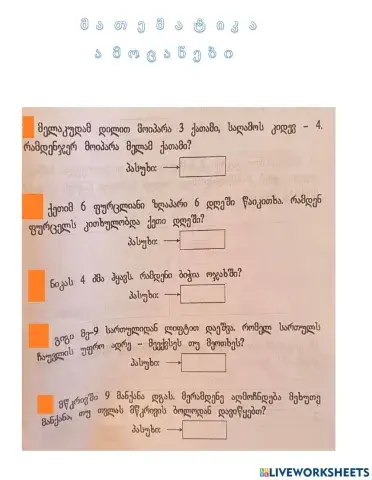 მათემატიკა
ამოცანები
მელაკუდამ დილით მოიპარა 3 ქათამი, საღამოს კიდევ – 4.
რამდენჯერ მოიპარა მელამ ქათამი?
პასუხი: →
ქეთიმ 6 ფურცლიანი ზღაპარი 6 დღეში წაიკითხა. რამდენ
ფურცელს კითხულობდა ქეთი დღეში?
პასუხი: →
ნიკას 4 ძმა ჰყავს. რამდენი ბიჭია ოჯახში?
პასუხი: →
გიგი მე-9 სართულიდან ლიფტით დაეშვა. რომელ სართულს
ჩაუვლის უფრო ადრე – მეექვსეს თუ მეოთხეს?
პასუხი: →
მწკრივში 9 მანქანა დგას. მერამდენე აღმოჩნდება მეხუთე
მანქანა, თუ თვლას მწკრივის ბოლოდან დავიწყებთ?
პასუხი: →
LIVEWORKSHEETS